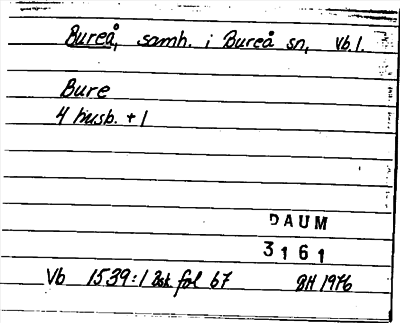 Bureå, samh. i Bureå sn, Vb.l.
Bure
4 husb. + 1
DAUM
3161
Vb 1539:1 Bsk. fol 67 GH 1976